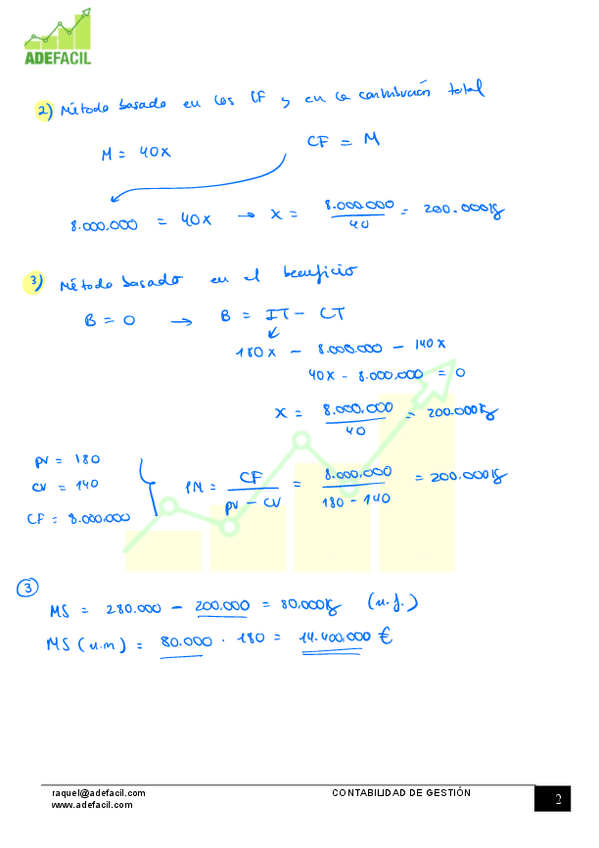 ADEFACIL
2) Método basado en los CF y en la contribución total
M = 40x
CF = M
8.000.000 = 40x → x = 8.000.000 / 40 = 200.000kg
3) Método basado en el beneficio
B = 0 → B = IT - CT
180x - 8.000.000 - 140x
40x - 8.000.000 = 0
x = 8.000.000 / 40 = 200.000kg
pv = 180
cv = 140
CF = 8.000.000
PM = CF / pv - cv = 8.000.000 / 180 - 140 = 200.000kg
3
MS = 280.000 - 200.000 = 80.000kg (u.f.)
MS (u.m) = 80.000 · 180 = 14.400.000 €
raquel@adefacil.com
CONTABILIDAD DE GESTIÓN
2
www.adefacil.com